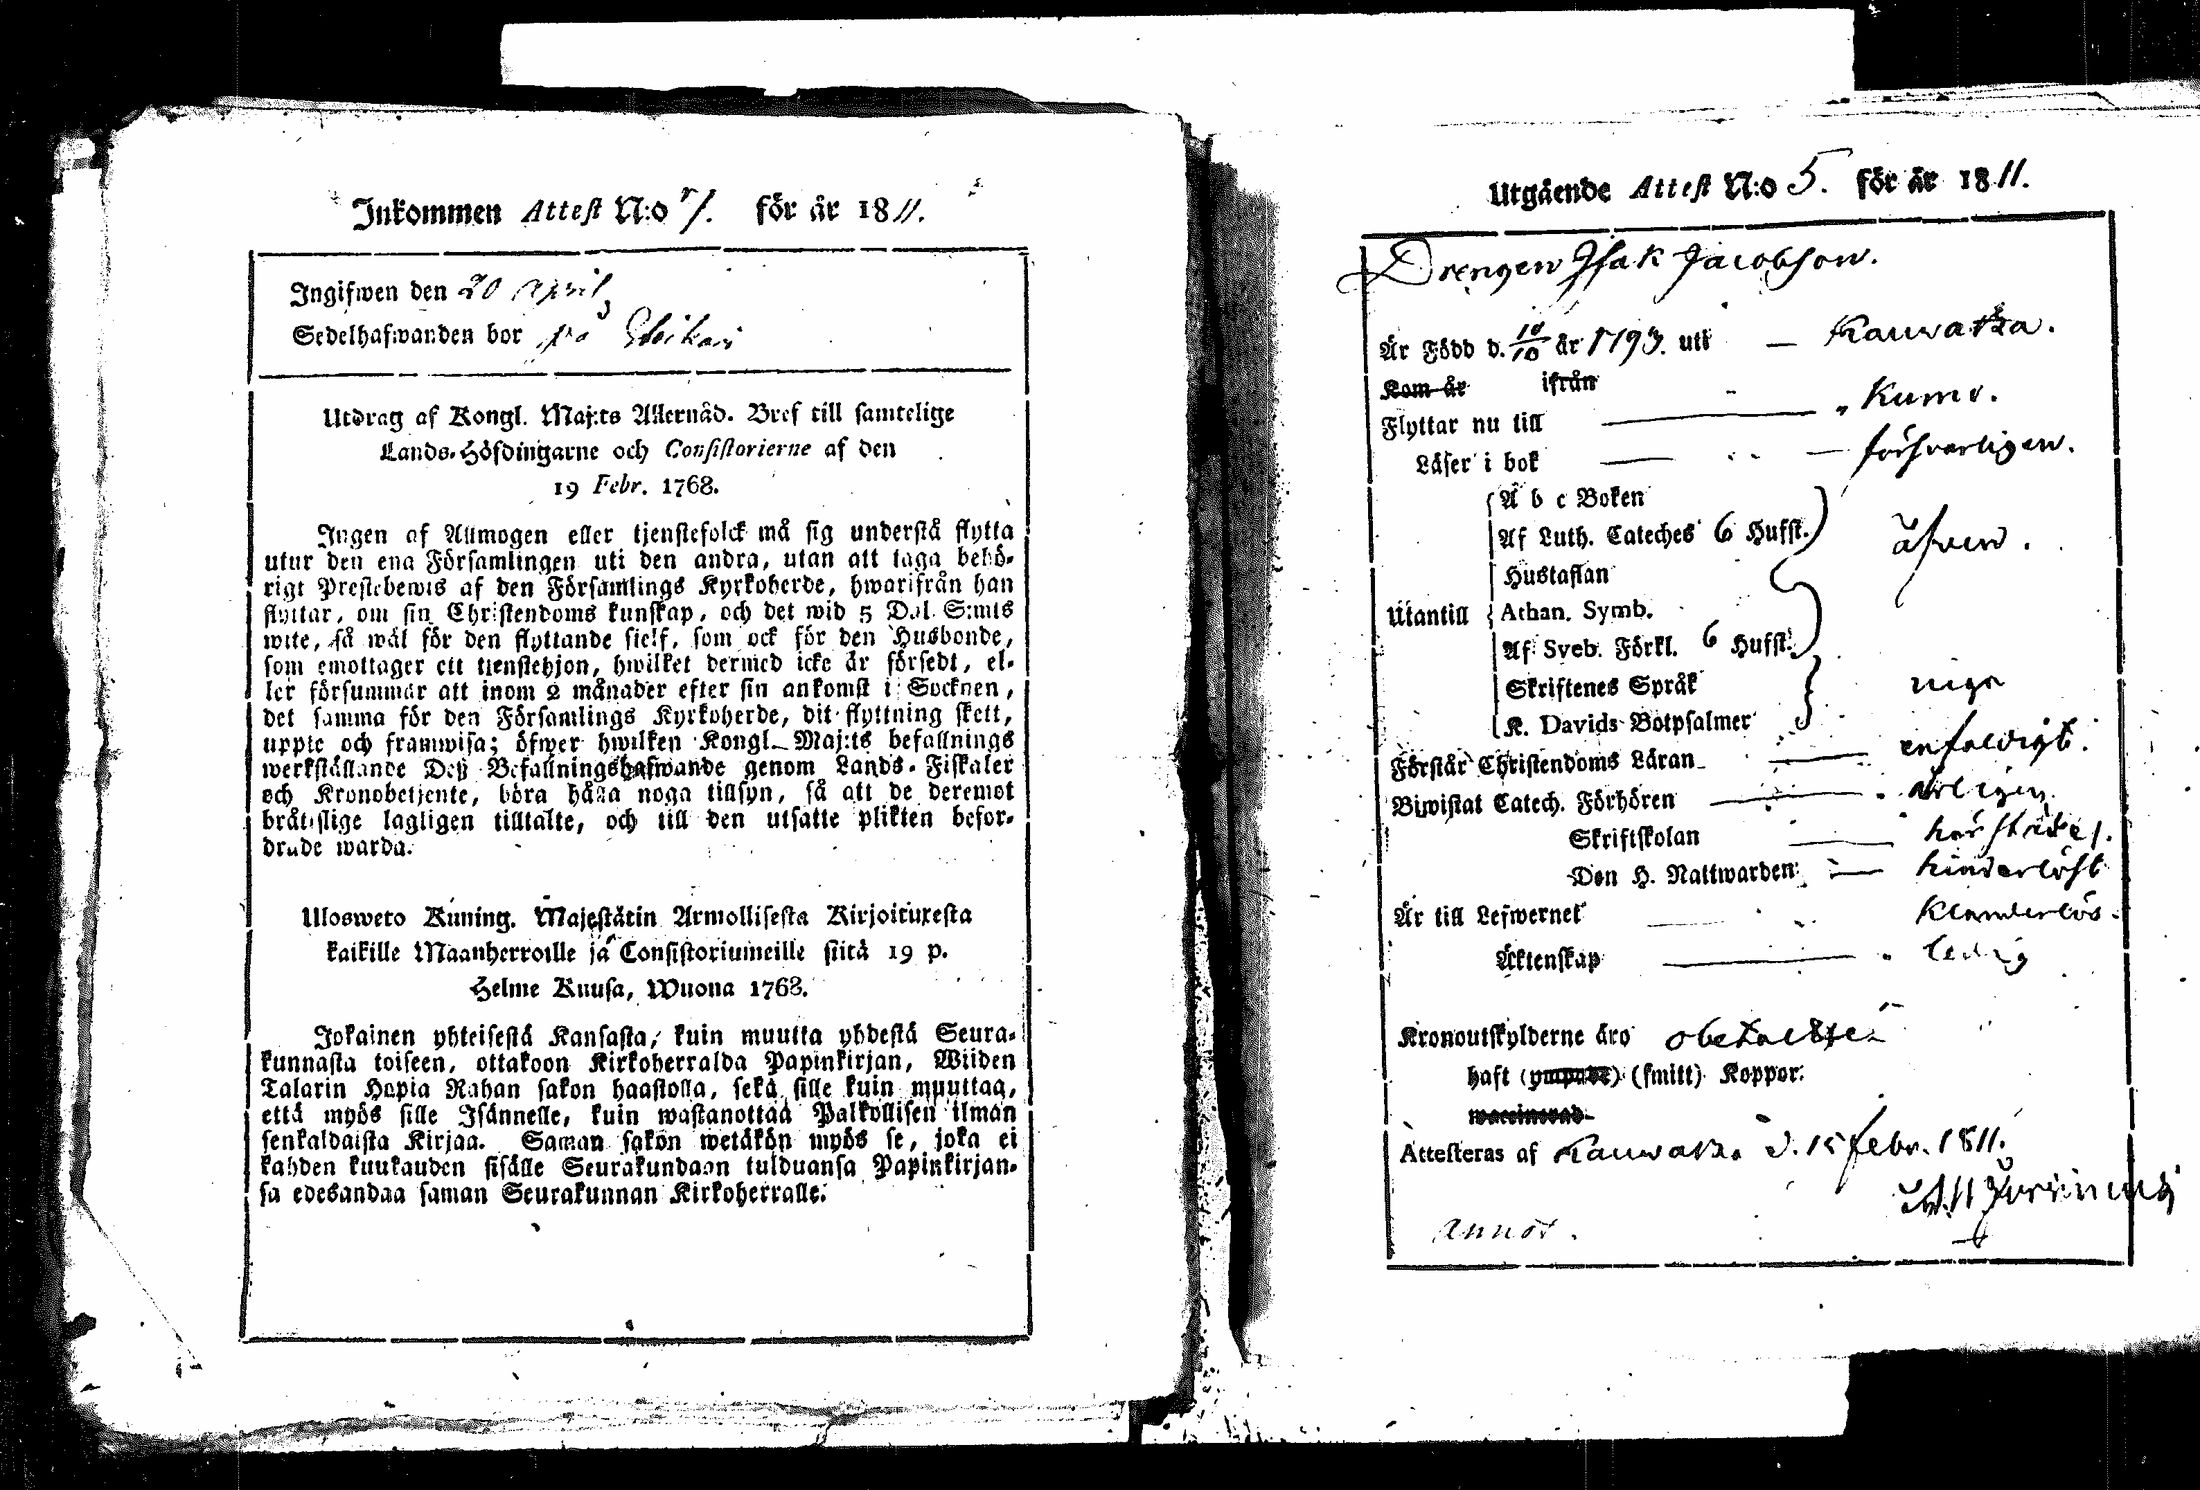 Inkommen Attest N:o 7. för år 1811.
Ingifwen den 20 April
Sedelhafwanden bor på
Utdrag af Kongl. Maj:ts Allernåd. Bref till samtelige
Lands-Höfdingarne och Consistorierne af den
19 Febr. 1768.
Ingen af Allmogen eller tjenstefolck må sig understå flytta
utur den ena Församlingen uti den andra, utan att taga behö-
rigt Prestebewis af den Församlings Kyrkoherde, hwarifrån han
flyttar, om sin Christendoms kunskap, och det wid 5 Dal. S:mts
wite, så wäl för den flyttande sielf, som ock för den Husbonde,
som emottager ett tienstehjon, hwilket dermed icke är försedt, el-
ler försummar att inom 2 månader efter sin ankomst i Socknen,
det samma för den Församlings Kyrkoherde, dit flyttning skett,
uppte och framwisa; öfwer hwilken Kongl. Maj:ts befallnings
werkställande Deß Befallningshafwande genom Lands-Fiskaler
och Kronobetjente, böra hålla noga tillsyn, så att de deremot
bråtslige lagligen tilltalte, och till den utsatte plikten befor-
drade warda.
Ulosweto Kuning. Majestätin Armollisesta Kirjoituxesta
kaikille Maanherroille ja Consistoriumeille siitä 19 p.
Helme Kuusa, Wuona 1768.
Jokainen yhteisestä Kansasta, kuin muutta yhdestä Seura-
kunnasta toiseen, ottakoon Kirkoherralda Papinkirjan, Wiiden
Talarin Hopia Rahan sakon haastolla, sekä sille kuin muuttaa,
että myös sille Isännelle, kuin wastanottaa Palkollisen ilman
senkaldaista Kirjaa. Saman sakon wetäkön myös se, joka ei
kahden kuukauden sisälle Seurakundaan tulduansa Papinkirjan-
sa edesandaa saman Seurakunnan Kirkoherralle.
Utgående Attest N:o 5. för år 1811.
Drengen Isak Jacobson.
Är Född d. 10/10 år 1793. uti Kauwatsa.
Kom år ifrån
Flyttar nu till Kumo.
Läser i bok försvarligen.
A b c Boken
Af Luth. Cateches 6 Hufst. äfven.
Hustaflan
Utantill Athan. Symb.
Af Sveb. Förkl. 6 Hufst.
Skriftenes Språk några
K. Davids Botpsalmer
Förstår Christendoms Läran enfaldigt.
Biwistat Catech. Förhören årligen
Skriftskolan härstädes.
Den H. Nattwarden hinderlöst
Är till Lefwernet klanderlös.
Äktenskap ledig
Kronoutskylderne äro obetalte
haft (ympade) (smitt) Koppor.
waccinerad
Attesteras af Kauwatsa d. 15 febr. 1811.
Annot.